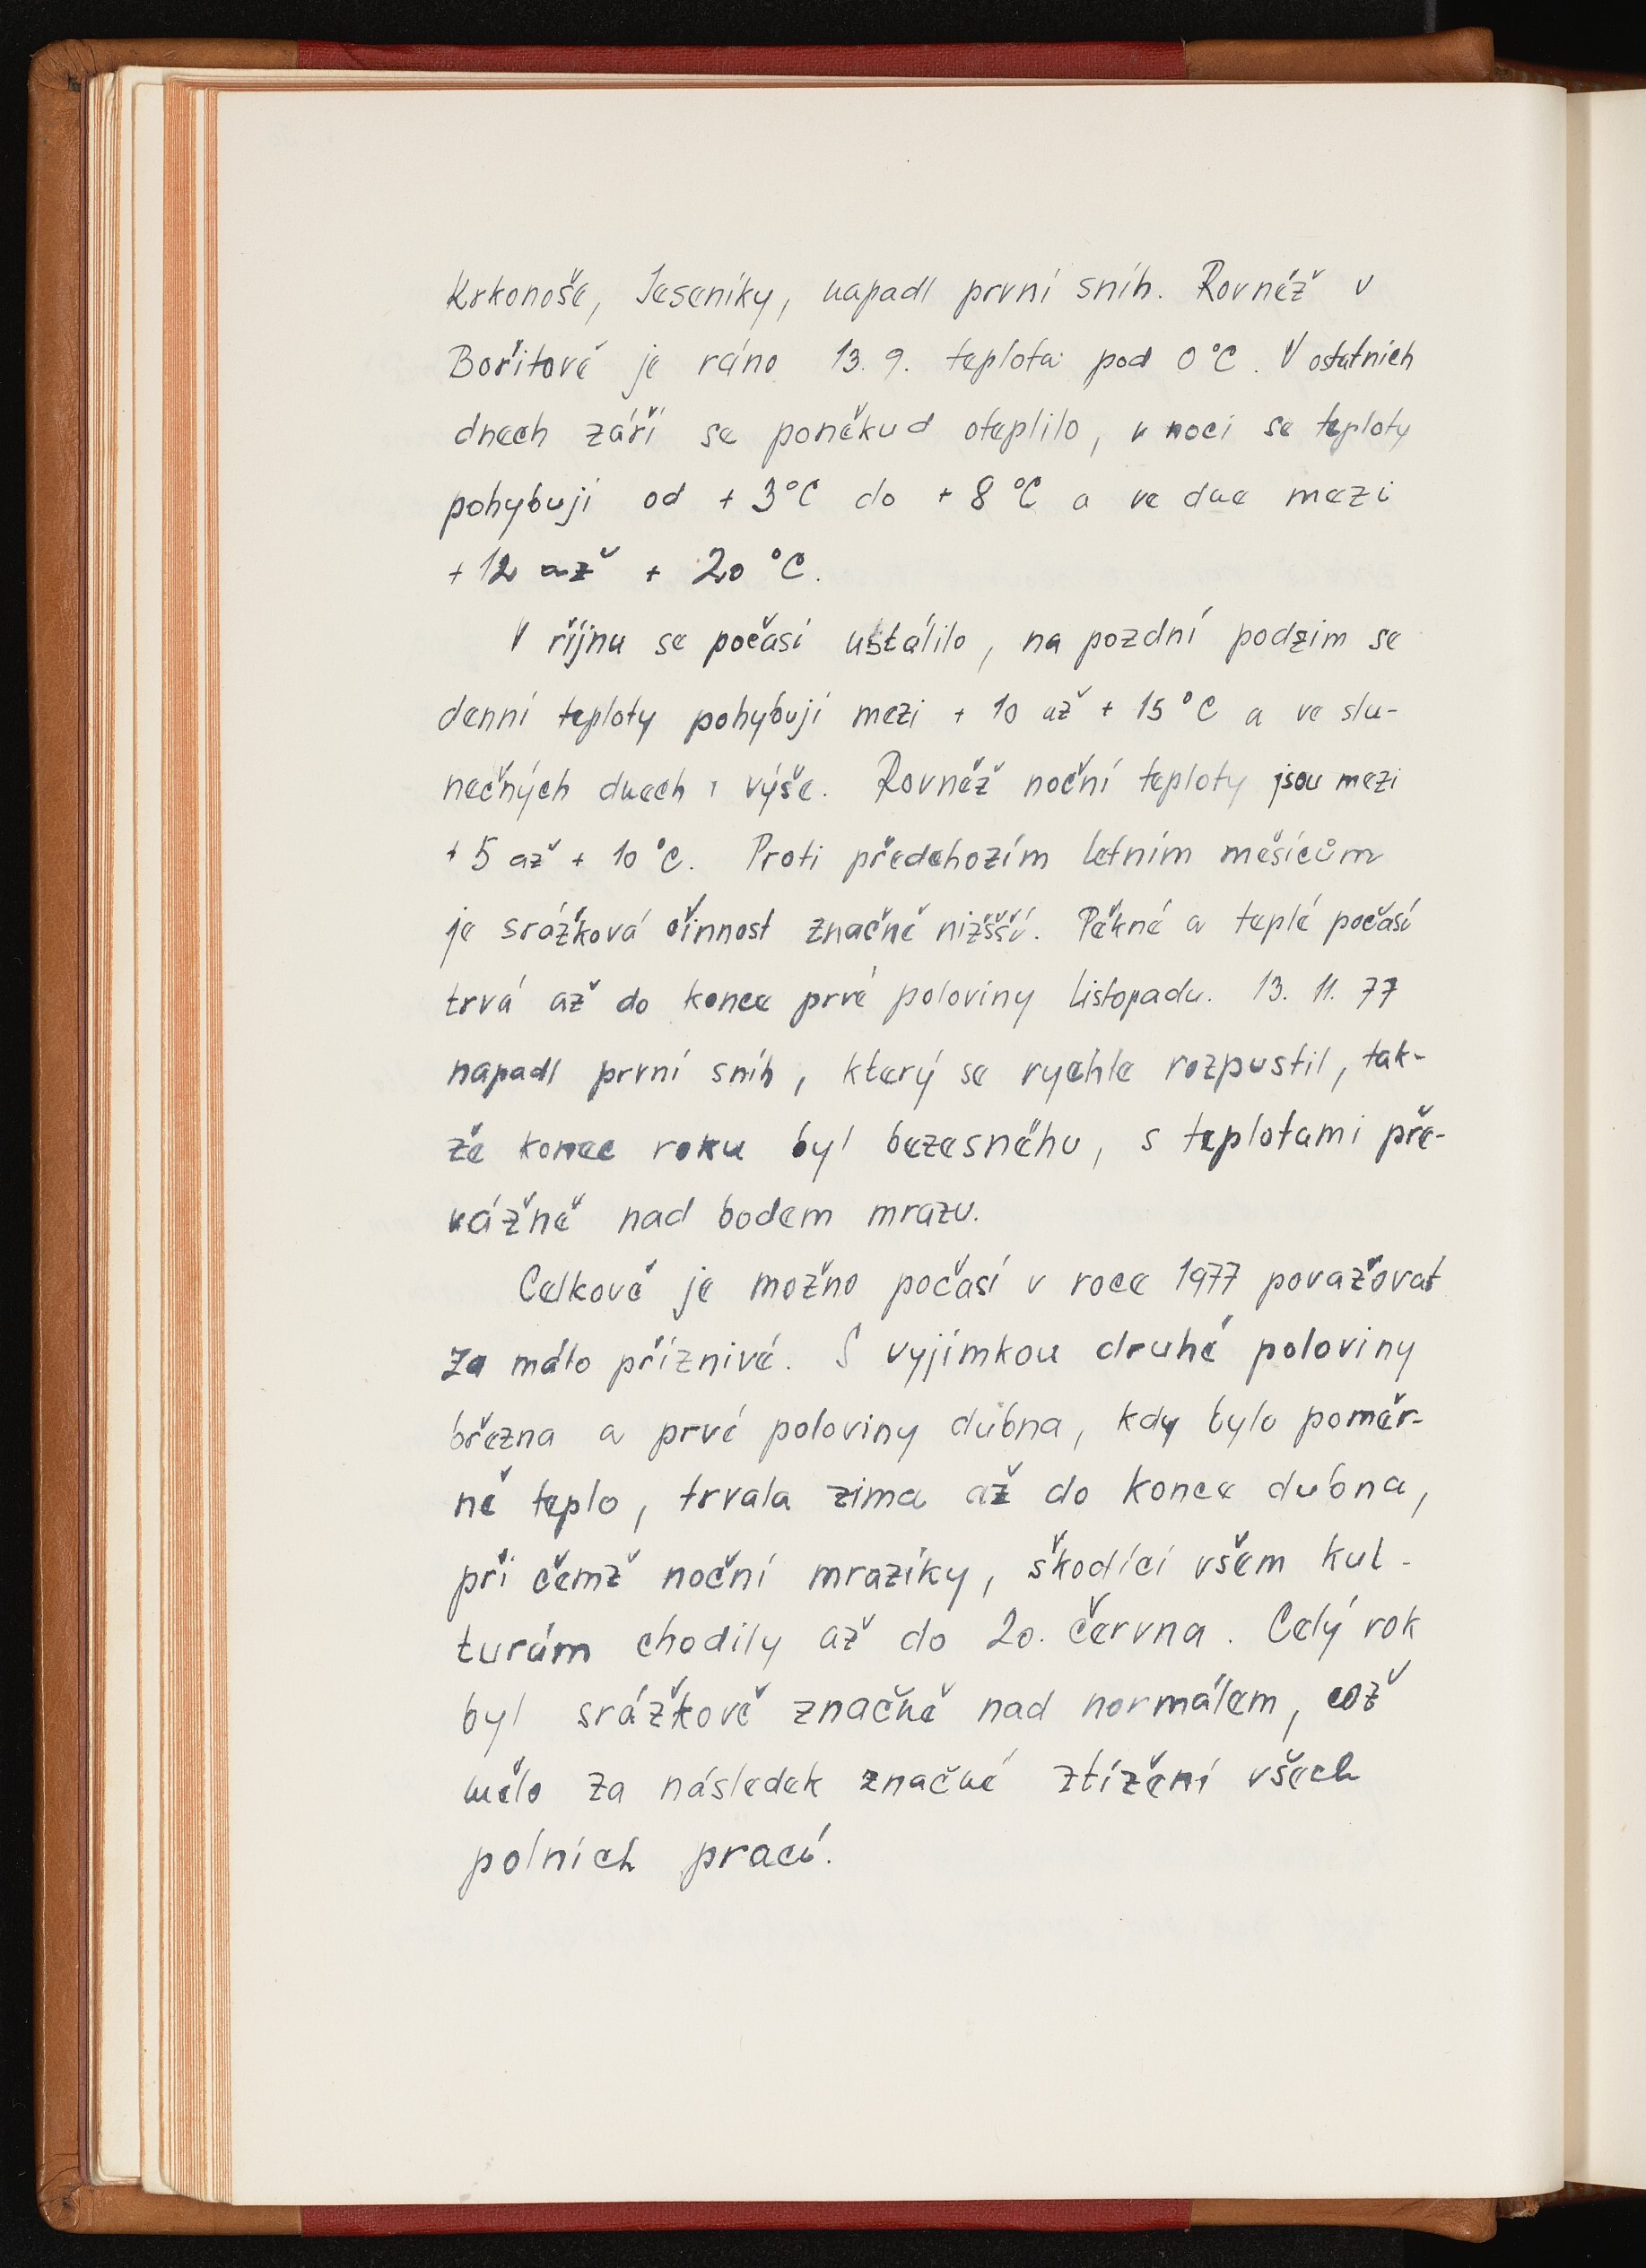 Krkonoše, Jeseníky, napadl první sníh. Rovněž v
Bořitově je ráno 13. 9. teplota pod 0 °C. V ostatních
dnech září se poněkud oteplilo, v noci se teploty
pohybují od + 3 °C do + 8 °C a ve dne mezi
+ 12 až + 20 °C.
V říjnu se počasí ustálilo, na pozdní podzim se
denní teploty pohybují mezi + 10 až + 15 °C a ve slu-
nečných dnech i výše. Rovněž noční teploty jsou mezi
+ 5 až + 10 °C. Proti předchozím letním měsícům
je srážková činnost značně nižšší. Pěkné a teplé počasí
trvá až do konce prvé poloviny listopadu. 13. 11. 77
napadl první sníh, který se rychle rozpustil, tak-
že konec roku byl bezesněhu, s teplotami pře-
vážně nad bodem mrazu.
Celkově je možno počasí v roce 1977 považovat
za málo příznivé. S vyjímkou druhé poloviny
března a prvé poloviny dubna, kdy bylo poměr-
ně teplo, trvala zima až do konce dubna,
při čemž noční mrazíky, škodící všem kul-
turám chodily až do 20. června. Celý rok
byl srážkově značně nad normálem, což
mělo za následek značné ztížení všech
polních prací.